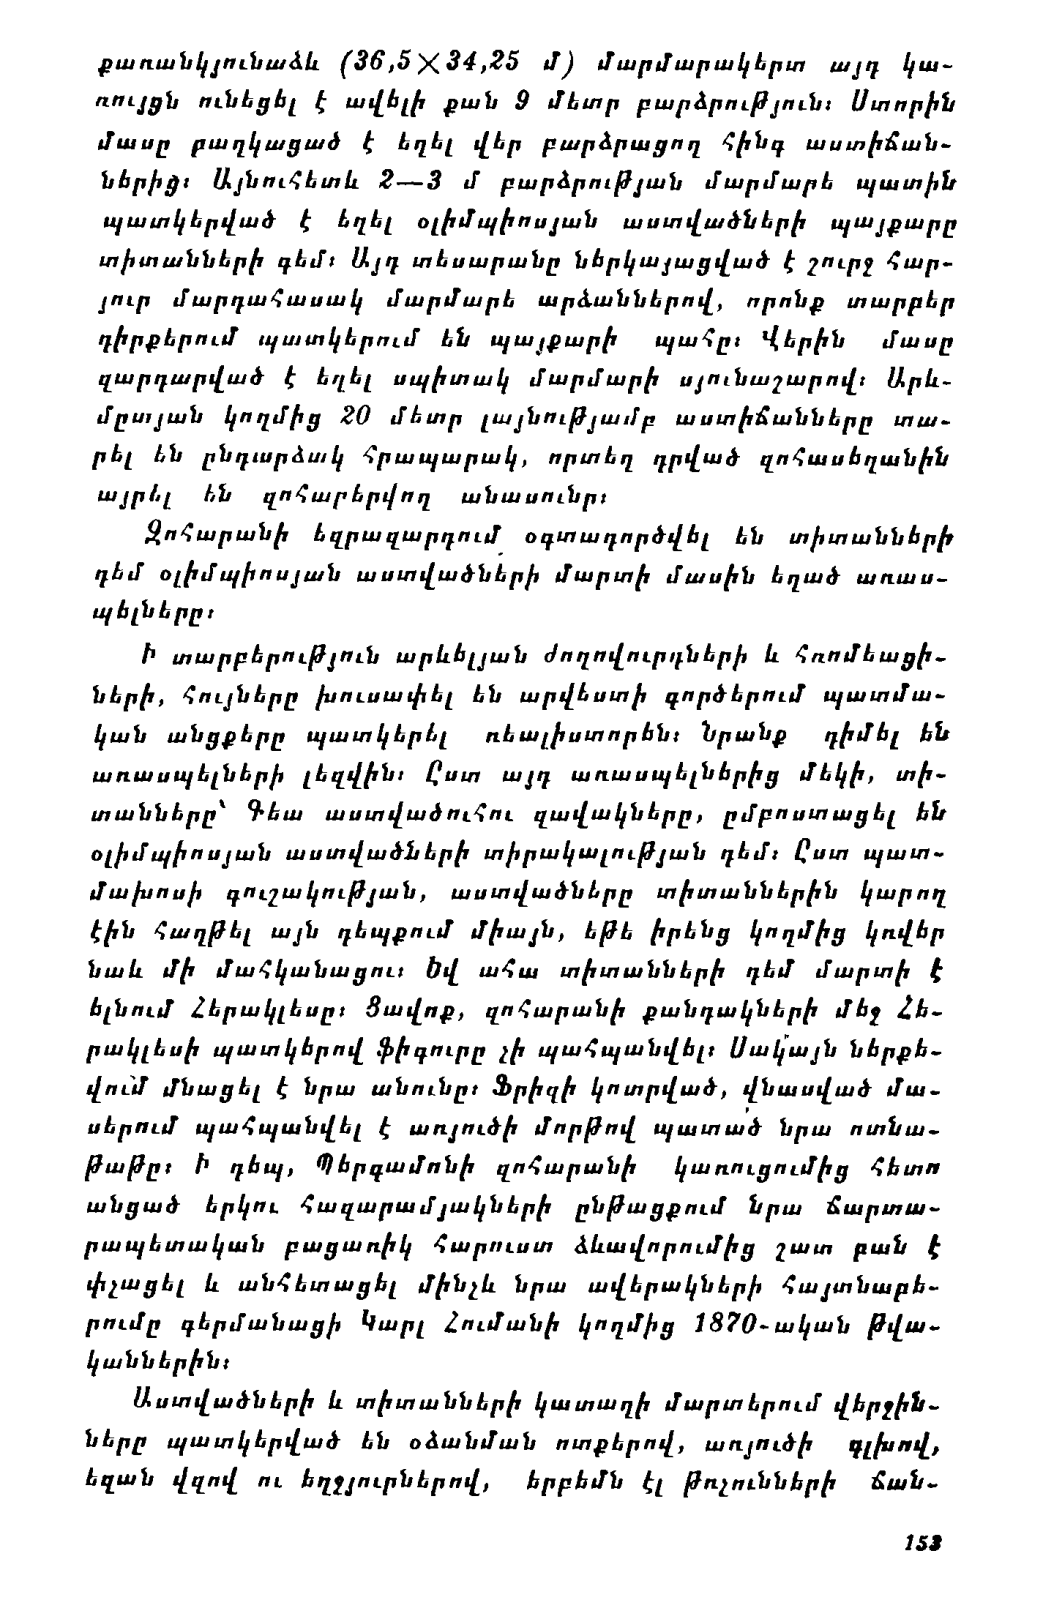 քառանկյունաձև (36,5×34,25 մ) մարմարակերտ այդ կա-
ռույցն ունեցել է ավելի քան 9 մետր բարձրություն։ Ստորին
մասը բաղկացած է եղել վեր բարձրացող հինգ աստիճան-
ներից։ Այնուհետև 2—3 մ բարձրության մարմարե պատին
պատկերված է եղել օլիմպիոսյան աստվածների պայքարը
տիտանների գեմ։ Այդ տեսարանը ներկայացված է շուրջ հար-
յուր մարդահասակ մարմարե արձաններով, որոնք տարբեր
դիրքերում պատկերում են պայքարի պահը։ Վերին մասը
զարդարված է եղել սպիտակ մարմարի սյունաշարով։ Արև-
մըտյան կողմից 20 մետր լայնությամբ աստիճանները տա-
րել են ընդարձակ հրապարակ, որտեղ դրված զոհասեղանին
այրել են զոհաբերվող անասունը։
Զոհարանի եզրազարդում օգտագործվել են տիտանների
դեմ օլիմպիոսյան աստվածների մարտի մասին եղած առաս-
պելները։
Ի տարբերություն արևելյան ժողովուրդների և հռոմեացի-
ների, հույները խուսափել են արվեստի գործերում պատմա-
կան անցքերը պատկերել ռեալիստորեն։ Նրանք դիմել են
առասպելների լեզվին։ Ըստ այդ առասպելներից մեկի, տի-
տանները՝ Գեա աստվածուհու զավակները, ըմբոստացել են
օլիմպիոսյան աստվածների տիրակալության դեմ։ Ըստ պատ-
մախոսի գուշակության, աստվածները տիտաններին կարող
էին հաղթել այն դեպքում միայն, եթե իրենց կողմից կռվեր
նաև մի մահկանացու։ Եվ ահա տիտանների դեմ մարտի է
ելնում Հերակլեսը։ Ցավոք, զոհարանի քանդակների մեջ Հե-
րակլեսի պատկերով ֆիգուրը չի պահպանվել։ Սակայն ներքե-
վում մնացել է նրա անունը։ Ֆրիզի կոտրված, վնասված մա-
սերում պահպանվել է առյուծի մորթով պատած նրա ոտնա-
թաթը։ Ի դեպ, Պերգամոնի զոհարանի կառուցումից հետո
անցած երկու հազարամյակների ընթացքում նրա ճարտա-
րապետական բացառիկ հարուստ ձևավորումից շատ բան է
փշացել և անհետացել մինչև նրա ավերակների հայտնաբե-
րումը գերմանացի Կարլ Հումանի կողմից 1870-ական թվա-
կաններին։
Աստվածների և տիտանների կատաղի մարտերում վերջին-
ները պատկերված են օձանման ոտքերով, առյուծի գլխով,
եզան վզով ու եղջյուրներով, երբեմն էլ թռչունների ճան-
153